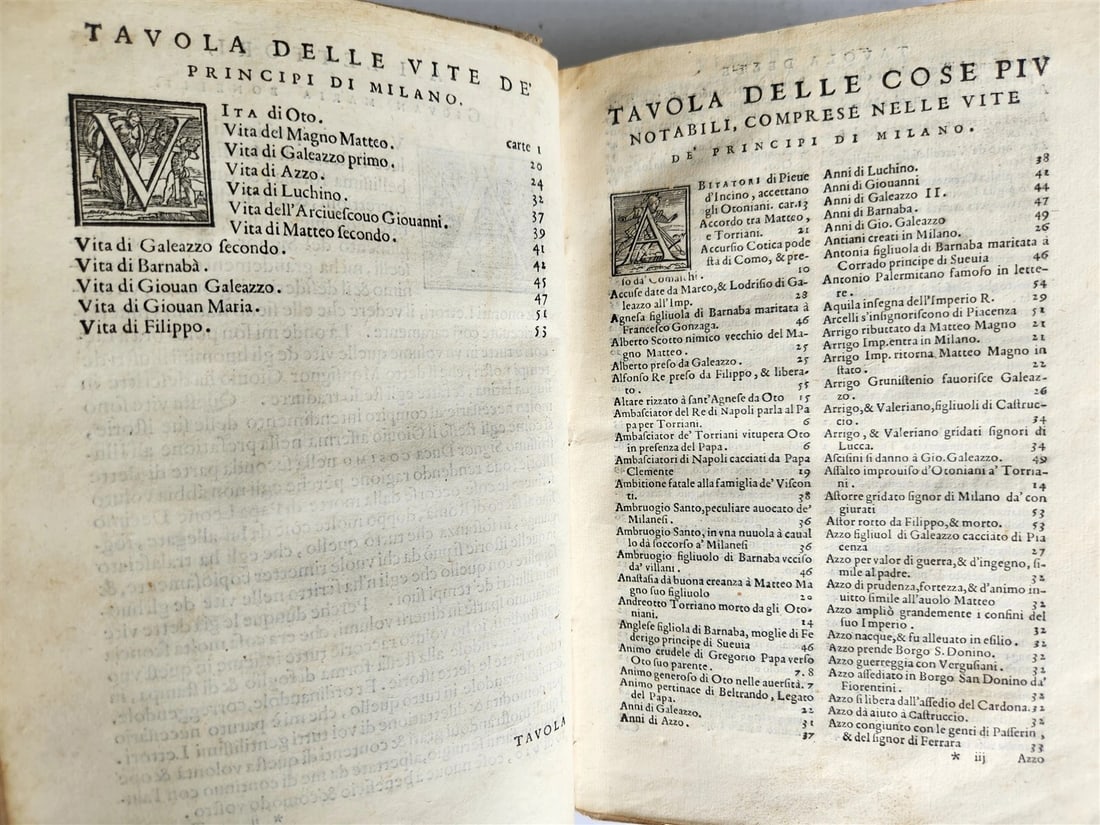 TAVOLA DELLE VITE DE'
PRINCIPI DI MILANO.
VITA di Oto. carte 1
Vita del Magno Matteo. 20
Vita di Galeazzo primo. 24
Vita di Azzo. 32
Vita di Luchino. 37
Vita dell'Arciuescouo Giouanni. 39
Vita di Matteo secondo. 41
Vita di Galeazzo secondo. 42
Vita di Barnabà. 45
Vita di Giouan Galeazzo. 47
Vita di Giouan Maria. 51
Vita di Filippo. 53
TAVOLA
TAVOLA DELLE COSE PIV
NOTABILI, COMPRESE NELLE VITE
DE' PRINCIPI DI MILANO.
ABITATORI di Pieue
d'Incino, accettano
gli Otoniani. car.13
Accordo tra Matteo,
e Torriani. 21
Accursio Cotica pode
sta di Como, & pre-
so da' Comaschi. 10
Accuse date da Marco, & Lodrisio di Ga-
leazzo all'Imp. 28
Agnesa figliuola di Barnaba maritata à
Francesco Gonzaga. 46
Alberto Scotto nimico vecchio del Ma-
gno Matteo. 25
Alberto preso da Galeazzo. 25
Alfonso Re preso da Filippo, & libera-
to. 55
Altare rizzato à sant'Agnese da Oto 15
Ambasciator del Re di Napoli parla al Pa
pa per Torriani. 6
Ambasciator de' Torriani vitupera Oto
in presenza del Papa. 6
Ambasciatori di Napoli cacciati da Papa
Clemente 19
Ambitione fatale alla famiglia de' Viscon
ti. 38
Ambruogio Santo, peculiare auocato de'
Milanesi. 36
Ambruogio Santo, in vna nuuola à caual
lo dà soccorso a' Milanesi 36
Ambruogio figliuolo di Barnaba vcciso
da' villani. 46
Anastasia dà buona creanza à Matteo Ma
gno suo figliuolo 20
Andreotto Torriano morto da gli Oto-
niani. 14
Anglese figliola di Barnaba, moglie di Fe
derigo principe di Sueuia 46
Animo crudele di Gregorio Papa verso
Oto suo parente. 7.8
Animo generoso di Oto nelle auersità. 7
Animo pertinace di Beltrando, Legato
del Papa. 22
Anni di Galeazzo. 31
Anni di Azzo. 37
Anni di Luchino. 38
Anni di Giouanni 41
Anni di Galeazzo II. 44
Anni di Barnaba. 47
Anni di Gio. Galeazzo 49
Antiani creati in Milano. 26
Antonia figliuola di Barnaba maritata à
Corrado principe di Sueuia 46
Antonio Palermitano famoso in lette-
re. 54
Aquila insegna dell'Imperio R. 29
Arcelli s'insignoriscono di Piacenza 51
Arrigo ributtato da Matteo Magno 21
Arrigo Imp. entra in Milano. 21
Arrigo Imp. ritorna Matteo Magno in
stato. 22
Arrigo Grunistenio fauorisce Galeaz-
zo. 26
Arrigo, & Valeriano, figliuoli di Castruc-
cio. 34
Arrigo, & Valeriano gridati signori di
Lucca. 34
Ascisini si danno à Gio.Galeazzo. 49
Assalto improuiso d'Otoniani a' Torria-
ni. 14
Astorre gridato signor di Milano da' con
giurati 53
Astor rotto da Filippo, & morto. 53
Azzo figliuol di Galeazzo cacciato di Pia
cenza 27
Azzo per valor di guerra, & d'ingegno, si-
mile al padre. 32
Azzo di prudenza, fortezza, & d'animo in-
uitto simile all'auolo Matteo 32
Azzo ampliò grandemente i confini del
suo Imperio. 32
Azzo nacque, & fu alleuato in esilio. 32
Azzo prende Borgo S. Donino. 32
Azzo guerreggia con Vergusiani. 32
Azzo assediato in Borgo San Donino da'
Fiorentini. 32
Azzo si libera dall'assedio del Cardona. 32
Azzo dà aiuto à Castruccio. 32
Azzo congiunto con le genti di Passerin,
& del signor di Ferrara 33
* iij Azzo